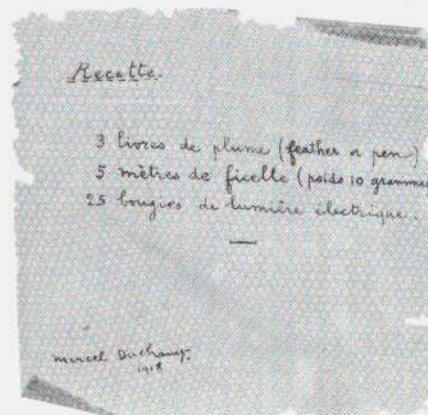 Recette.
3 livres de plume (feather or pen)
5 mètres de ficelle (poids 10 grammes
25 bougies de lumière électrique.
marcel Duchamp.
1918